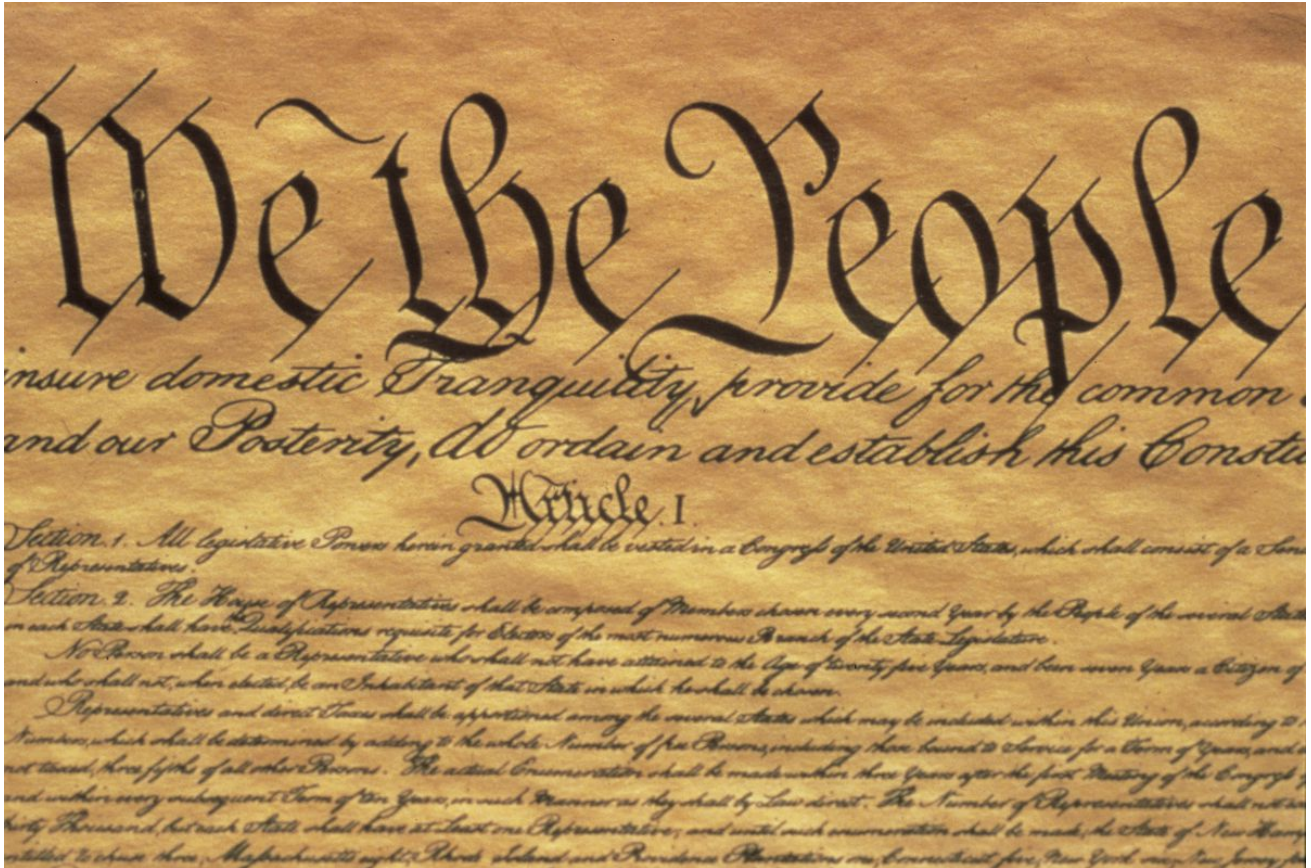 We the People
insure domestic Tranquility, provide for the common
and our Posterity, do ordain and establish this Constitu
Article. I.
Section. 1. All legislative Powers herein granted shall be vested in a Congress of the United States, which shall consist of a Sena
of Representatives.
Section. 2. The House of Representatives shall be composed of Members chosen every second Year by the People of the several States
in each State shall have Qualifications requisite for Electors of the most numerous Branch of the State Legislature.
No Person shall be a Representative who shall not have attained to the Age of twenty five Years, and been seven Years a Citizen of
and who shall not, when elected, be an Inhabitant of that State in which he shall be chosen.
Representatives and direct Taxes shall be apportioned among the several States which may be included within this Union, according to
Numbers, which shall be determined by adding to the whole Number of free Persons, including those bound to Service for a Term of Years, and
not taxed, three fifths of all other Persons. The actual Enumeration shall be made within three Years after the first Meeting of the Congress
and within every subsequent Term of ten Years, in such Manner as they shall by Law direct. The Number of Representatives shall not
thirty Thousand, but each State shall have at Least one Representative; and until such enumeration shall be made, the State of New Ham
entitled to chuse three, Massachusetts eight, Rhode Island and Providence Plantations one, Connecticut five, New York